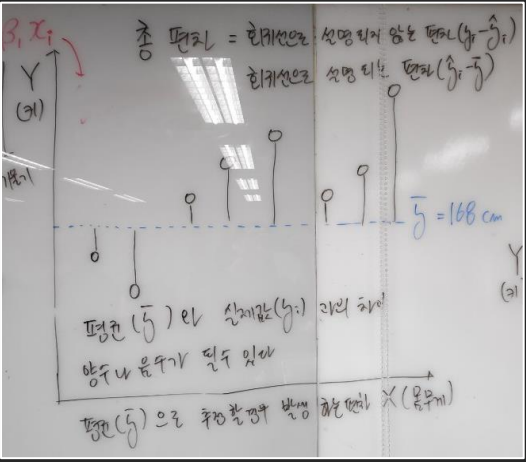 β₁xᵢ
총 편차 = 회귀선으로 설명되지 않는 편차(yᵢ-ŷᵢ)
회귀선으로 설명 되는 편차(ŷᵢ-ȳ)
Y
(키)
ȳ = 168 cm
Y
(키
평균(ȳ)와 실제값(yᵢ)과의 차이
양수나 음수가 될수 있다
평균(ȳ)으로 추정할 경우 발생하는 편차
X (몸무게)